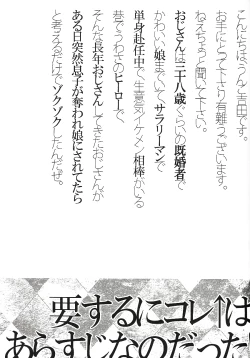 こんにちは、うんと吉田です。
お手にとって下さり有難うございます。
ねえちょっと聞いて下さい。
おじさんは三十八歳ぐらいの既婚者で
かわいい娘までいて、サラリーマンで
単身赴任中で、生意気イケメン相棒がいる
昔でうわさのヒーローで、
そんな長年おじさんしてきたおじさんが
ある日突然息子が奪われ娘にされてたら
と考えるだけでゾクゾクしたんだぜ。
要するにコレ↑は
あらすじなのだった!